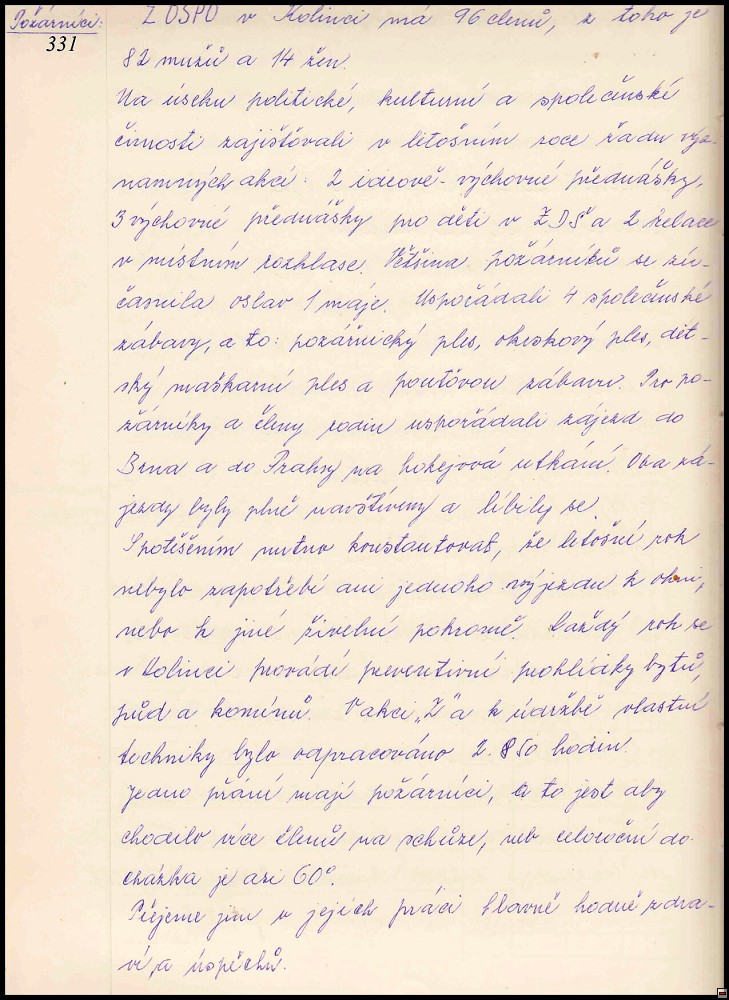 Požárníci:
331
ZOSPO v Kolinci má 96 členů, z toho je
82 mužů a 14 žen.
Na úseku politické, kulturní a společenské
činnosti zajišťovali v letošním roce řadu výz-
namných akcí: 2 ideově-výchovné přednášky,
3 výchovné přednášky pro děti v ZDŠ a 2 relace
v místním rozhlase. Většina požárníků se zú-
častnila oslav 1 máje. Uspořádali 4 společenské
zábavy, a to: požárnický ples, okrskový ples, dět-
ský maškarní ples a pouťovou zábavu. Pro po-
žárníky a členy rodin uspořádali zájezd do
Brna a do Prahy na hokejová utkání. Oba zá-
jezdy byly plně navštíveny a líbily se.
S potěšením nutno konstantovat, že letošní rok
nebylo zapotřebí ani jednoho výjezdu k ohni,
nebo k jiné živelní pohromě. Každý rok se
v Kolinci provádí preventivní prohlídky bytů,
půd a komínů. V akci „Z" a k údržbě vlastní
techniky bylo odpracováno 2.850 hodin.
Jedno přání mají požárníci, a to jest aby
chodilo více členů na schůze, neb celoroční do-
cházka je asi 60°.
Přejeme jim v jejich práci hlavně hodně zdra-
ví, a úspěchů.